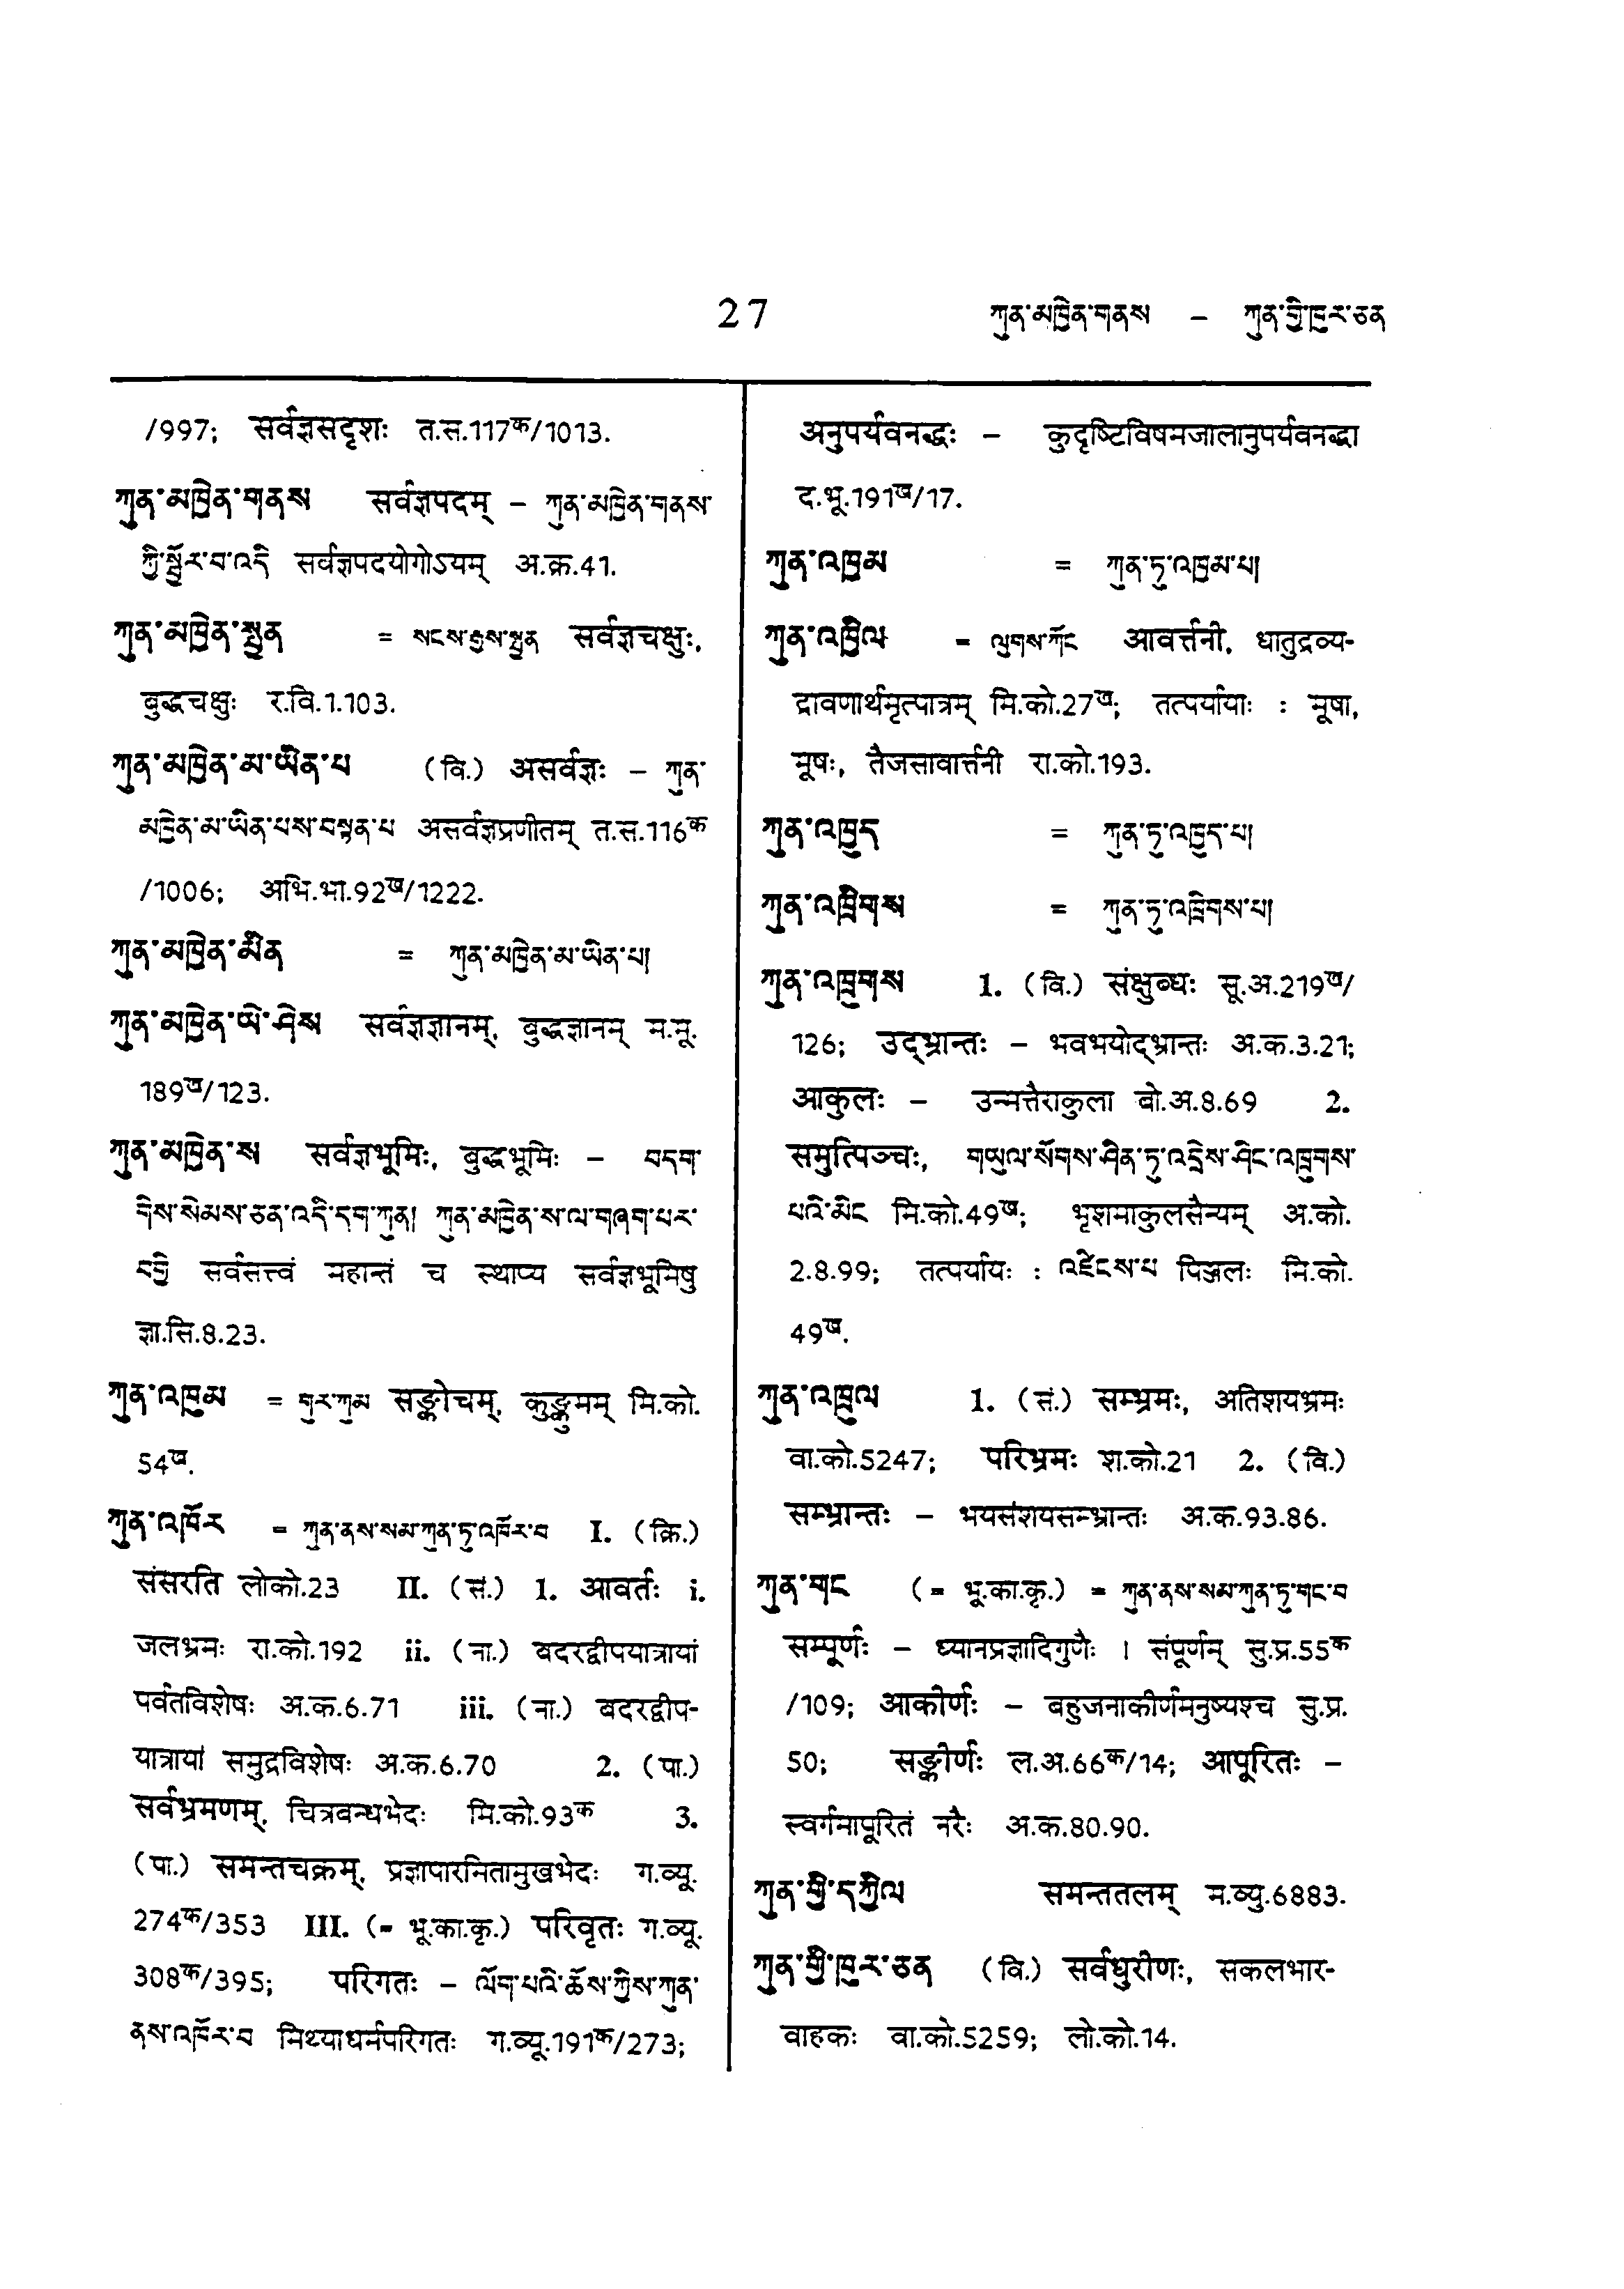 27
ཀུན་མཁྱེན་གནས – ཀུན་གྱི་ཁུར་ཅན
/997; सर्वज्ञसदृशः त.स.117क/1013.
ཀུན་མཁྱེན་གནས सर्वज्ञपदम् – ཀུན་མཁྱེན་གནས་
ཀྱི་སྦྱོར་བ་འདི सर्वज्ञपदयोगोऽयम् अ.क्र.41.
ཀུན་མཁྱེན་སྤྱན = སངས་རྒྱས་སྤྱན सर्वज्ञचक्षुः,
बुद्धचक्षुः र.वि.1.103.
ཀུན་མཁྱེན་མ་ཡིན་པ (वि.) असर्वज्ञः – ཀུན་
མཁྱེན་མ་ཡིན་པས་བསྟན་པ असर्वज्ञप्रणीतम् त.स.116क
/1006; अभि.भा.92ख/1222.
ཀུན་མཁྱེན་མིན = ཀུན་མཁྱེན་མ་ཡིན་པ།
ཀུན་མཁྱེན་ཡེ་ཤེས सर्वज्ञज्ञानम्, बुद्धज्ञानम् म.मू.
189ख/123.
ཀུན་མཁྱེན་ས सर्वज्ञभूमिः, बुद्धभूमिः – བདག་
གིས་སེམས་ཅན་འདི་དག་ཀུན། ཀུན་མཁྱེན་ས་ལ་གཞག་པར་
བགྱི सर्वसत्त्वं महान्तं च स्थाप्य सर्वज्ञभूमिषु
ज्ञा.सि.8.23.
ཀུན་འཁུམ = གུར་ཀུམ सङ्कोचम्, कुङ्कुमम् मि.को.
54ख.
ཀུན་འཁོར = ཀུན་ནས་སམ་ཀུན་ཏུ་འཁོར་བ I. (क्रि.)
संसरति लोको.23 II. (सं.) 1. आवर्तः i.
जलभ्रमः रा.को.192 ii. (ना.) बदरद्वीपयात्रायां
पर्वतविशेषः अ.क.6.71 iii. (ना.) बदरद्वीप-
यात्रायां समुद्रविशेषः अ.क.6.70 2. (पा.)
सर्वभ्रमणम्, चित्रबन्धभेदः मि.को.93क 3.
(पा.) समन्तचक्रम्, प्रज्ञापारमितामुखभेदः ग.व्यू.
274क/353 III. (= भू.का.कृ.) परिवृतः ग.व्यू.
308क/395; परिगतः – ལོག་པའི་ཆོས་ཀྱིས་ཀུན་
ནས་འཁོར་བ मिथ्याधर्मपरिगतः ग.व्यू.191क/273;
अनुपर्यवनद्धः – कुदृष्टिविषमजालानुपर्यवनद्धा
द.भू.191ख/17.
ཀུན་འཁྱམ = ཀུན་ཏུ་འཁྱམ་པ།
ཀུན་འཁྱིལ = ལུགས་ཀོང आवर्त्तनी, धातुद्रव्य-
द्रावणार्थमृत्पात्रम् मि.को.27ख; तत्पर्यायाः : मूषा,
मूषः, तैजसावार्त्तनी रा.को.193.
ཀུན་འཁྱུད = ཀུན་ཏུ་འཁྱུད་པ།
ཀུན་འཁྲིགས = ཀུན་ཏུ་འཁྲིགས་པ།
ཀུན་འཁྲུགས 1. (वि.) संक्षुब्धः सू.अ.219ख/
126; उद्भ्रान्तः – भवभयोद्भ्रान्तः अ.क.3.21;
आकुलः – उन्मत्तैराकुला बो.अ.8.69 2.
समुत्पिञ्चः, གཡུལ་སོགས་ཤིན་ཏུ་འདྲེས་ཤིང་འཁྲུགས་
པའི་མིང मि.को.49ख; भृशमाकुलसैन्यम् अ.को.
2.8.99; तत्पर्यायः : འཛིངས་པ पिञ्जलः मि.को.
49ख.
ཀུན་འཁྲུལ 1. (सं.) सम्भ्रमः, अतिशयभ्रमः
वा.को.5247; परिभ्रमः श.को.21 2. (वि.)
सम्भ्रान्तः – भयसंशयसम्भ्रान्तः अ.क.93.86.
ཀུན་གང (= भू.का.कृ.) = ཀུན་ནས་སམ་ཀུན་ཏུ་གང་བ
सम्पूर्णः – ध्यानप्रज्ञादिगुणैः । संपूर्णम् सु.प्र.55क
/109; आकीर्णः – बहुजनाकीर्णमनुष्यश्च सु.प्र.
50; सङ्कीर्णः ल.अ.66क/14; आपूरितः –
स्वर्गमापूरितं नरैः अ.क.80.90.
ཀུན་གྱི་དཀྱིལ समन्ततलम् म.व्यु.6883.
ཀུན་གྱི་ཁུར་ཅན (वि.) सर्वधुरीणः, सकलभार-
वाहकः वा.को.5259; लो.को.14.